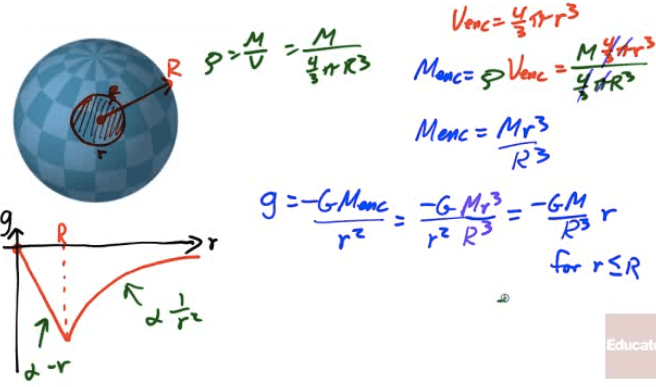 V_enc = 4/3 πr³
ρ = M/V = M/(4/3 πR³)
M_enc = ρ V_enc = (M 4/3 πr³)/(4/3 πR³)
M_enc = Mr³/R³
R
r
g = -GM_enc/r² = -G Mr³/(r² R³) = -GM/R³ r
for r ≤ R
g
R
r
α 1/r²
α -r
Educat